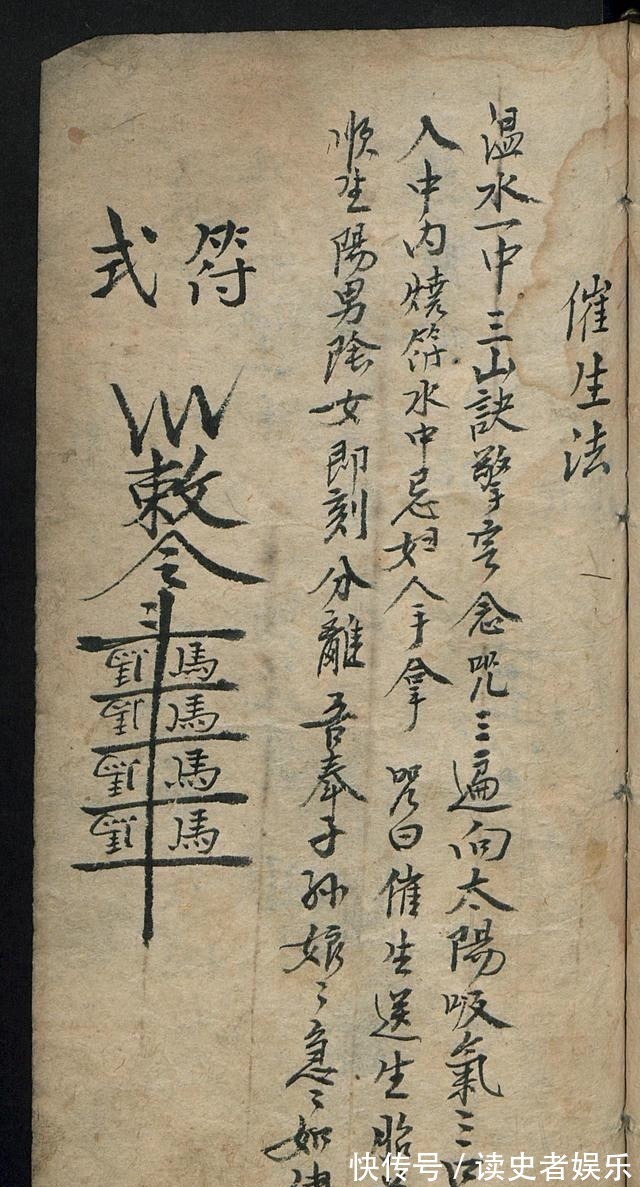 催生法
温水一中三山訣擎定念咒三遍向太陽吸氣三口
入中內燒符水中忌婦人手拿 咒曰催生送生胎
順生陽男陰女即刻分離吾奉子孫娘〻急〻如律
符
式
敕令
斗
馬
馬
馬
馬
快传号/读史者娱乐